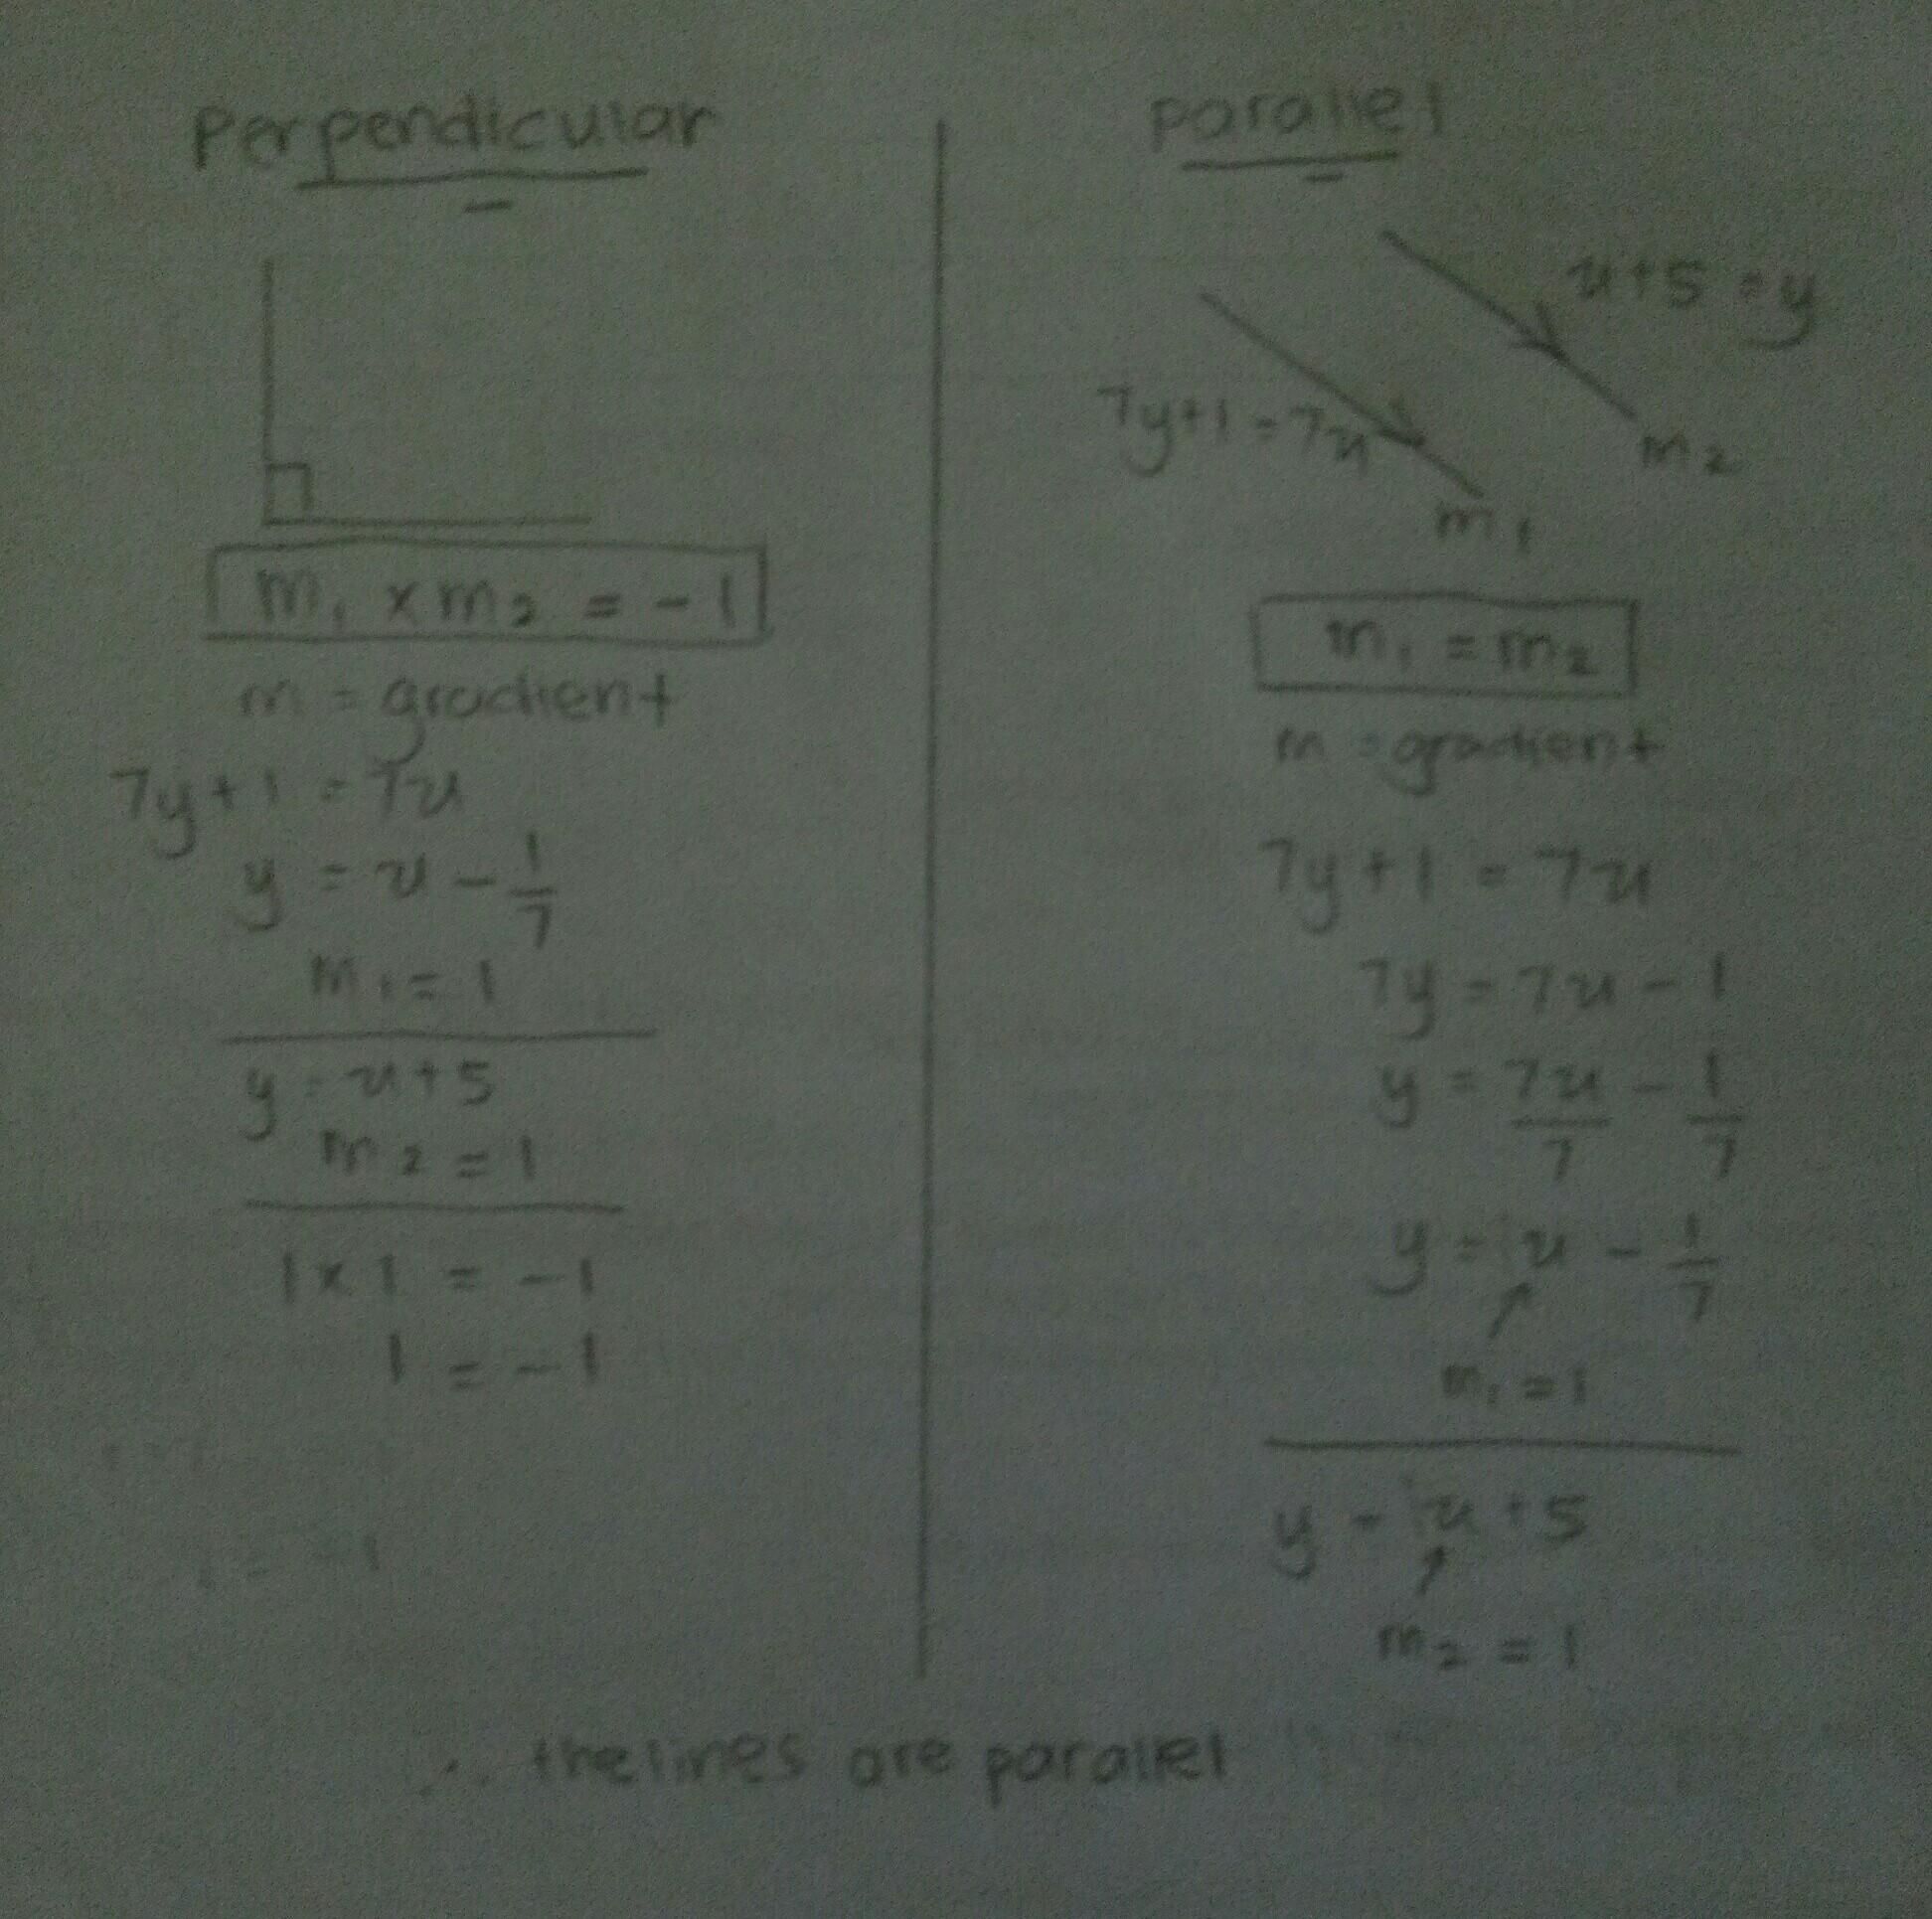 Perpendicular
m₁ x m₂ = -1
m = gradient
7y+1 = 7x
y = x - 1/7
m₁ = 1
y = x+5
m₂ = 1
1 x 1 = -1
1 = -1
parallel
x+5 = y
7y+1 = 7x
m₂
m₁
m₁ = m₂
m = gradient
7y+1 = 7x
7y = 7x - 1
y = 7x/7 - 1/7
y = 1x - 1/7
m₁ = 1
y = 1x + 5
m₂ = 1
∴ the lines are parallel